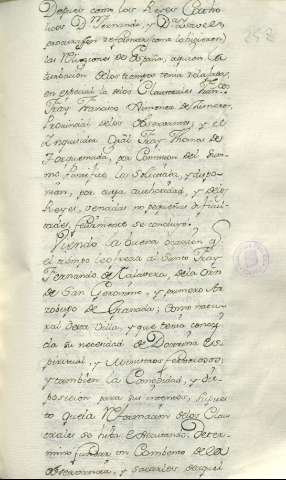 Despues como los Reyes Catho-
licos Dn. Fernando, y Dª. Isavel
procurassen reformar (como lo hicieron)
las Religiones de España, aquien la
turbacion de los tiempos tenia relajadas,
en especial la de los Claustrales Fran.cos
Fray Francisco Ximenez de Cisneros
Provincial de los Observantes, y el
Inquisidor Gral. Fray Thomas de
Torquemada, por Comision del Summo
Pontifice las Solicitaban, y dispo-
nian, por cuya authoridad, y de los
Reyes, vencidas no pequeñas dificul-
tades, felizmente se concluyó.
Viendo la buena ocasion q.
el tiempo le ofrecia el Santo Fray
Fernando de Talavera, de la Orn
de San Geronimo, y primero Ar-
zobispo de Granada; como natu-
ral desta Villa, y que tenia conoci-
da su necesidad de Doctrina Es-
piritual, y Ministros
y tambien la Comodidad, y dis-
posicion para su intento, supues-
to que la Reformacion de los Claus-
trales se hiba executando, Deter-
minó fundar un Combento de la
Observancia, y sacarlos de aquel
252